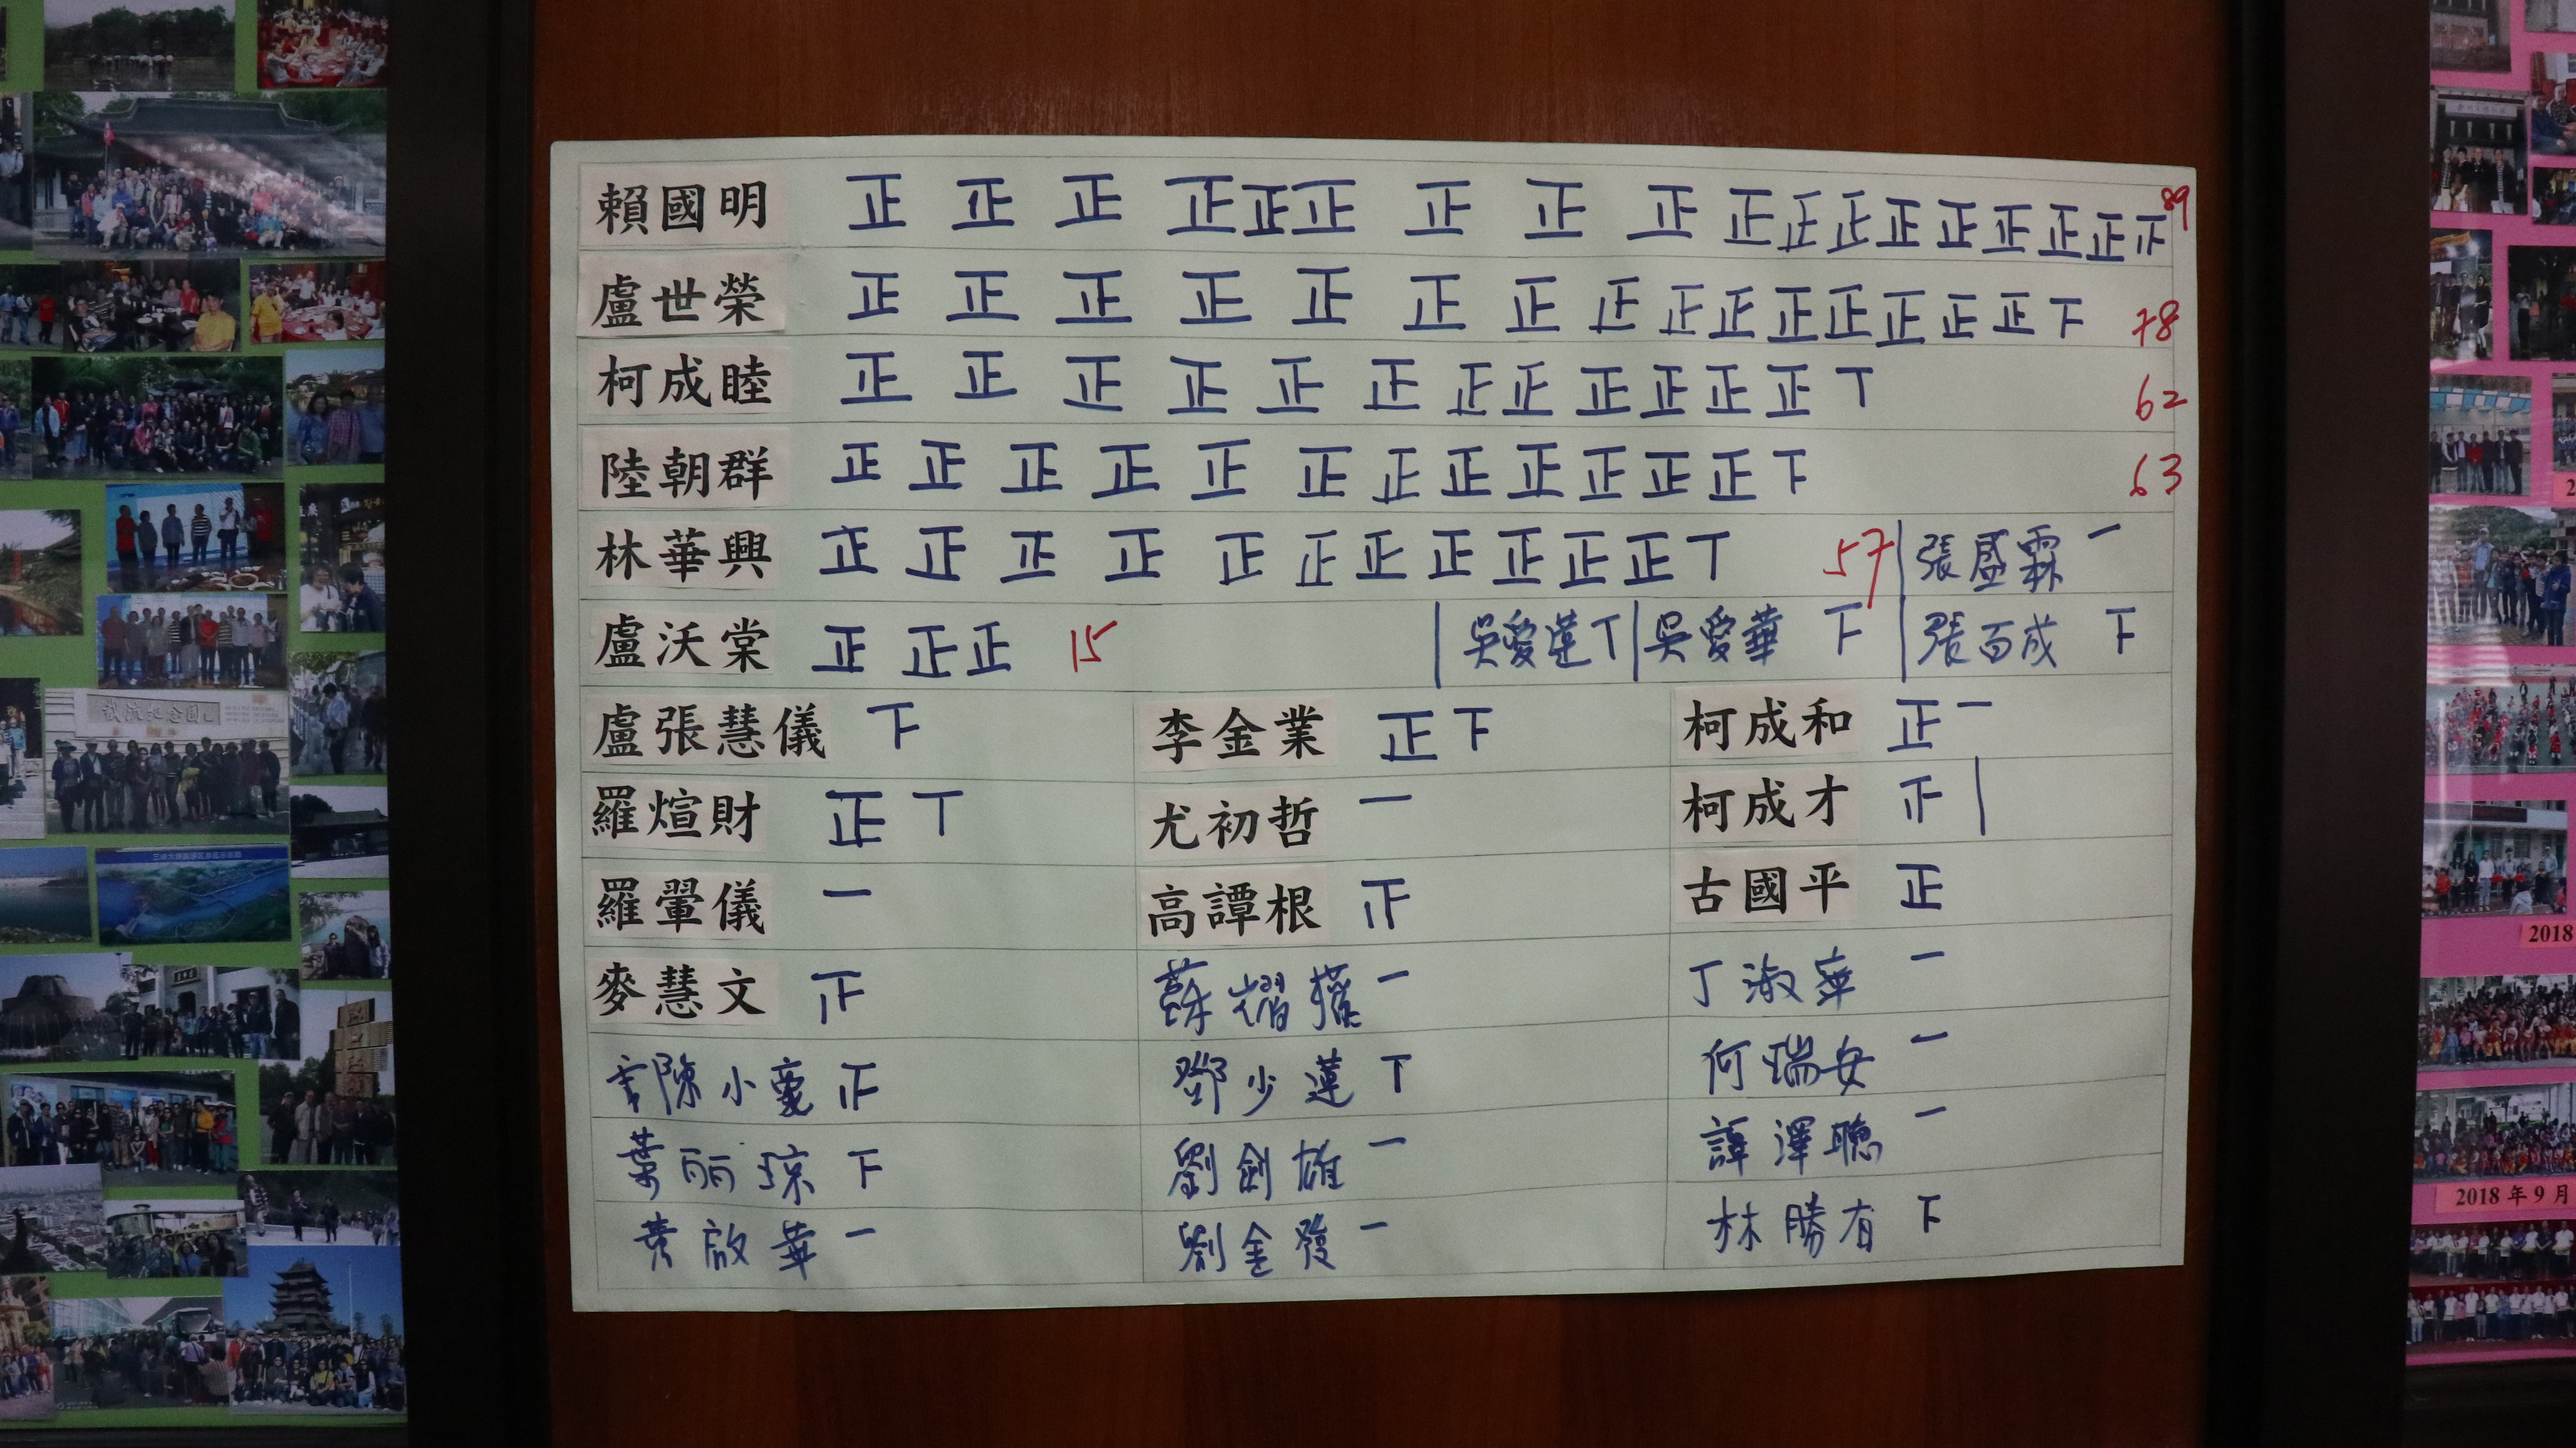 賴國明 正 正 正 正正正 正 正 正 正正正正正正正正正 89
盧世榮 正 正 正 正 正 正 正 正 正 正 正 正 正 正 正 下 78
柯成睦 正 正 正 正 正 正 正 正 正 正 正 正 丅 62
陸朝群 正 正 正 正 正 正 正 正 正 正 正 正 下 63
林華興 正 正 正 正 正 正 正 正 正 正 正 丅 57 張盛霖 一
盧沃棠 正 正正 15 吳愛蓮 丅 吳愛華 下 張百成 下
盧張慧儀 下 李金業 正下 柯成和 正一
羅煊財 正丅 尤初哲 一 柯成才 正
羅翬儀 一 高譚根 正 古國平 正
麥慧文 正 蘇 一 丁淑華 一
陳小 正 鄧少蓮 丅 何瑞安 一
葉丽琼 下 劉劍雄 一 譚澤聰 一
黄啟華 一 劉金發 一 林勝有 下
2018
2018 年 9 月